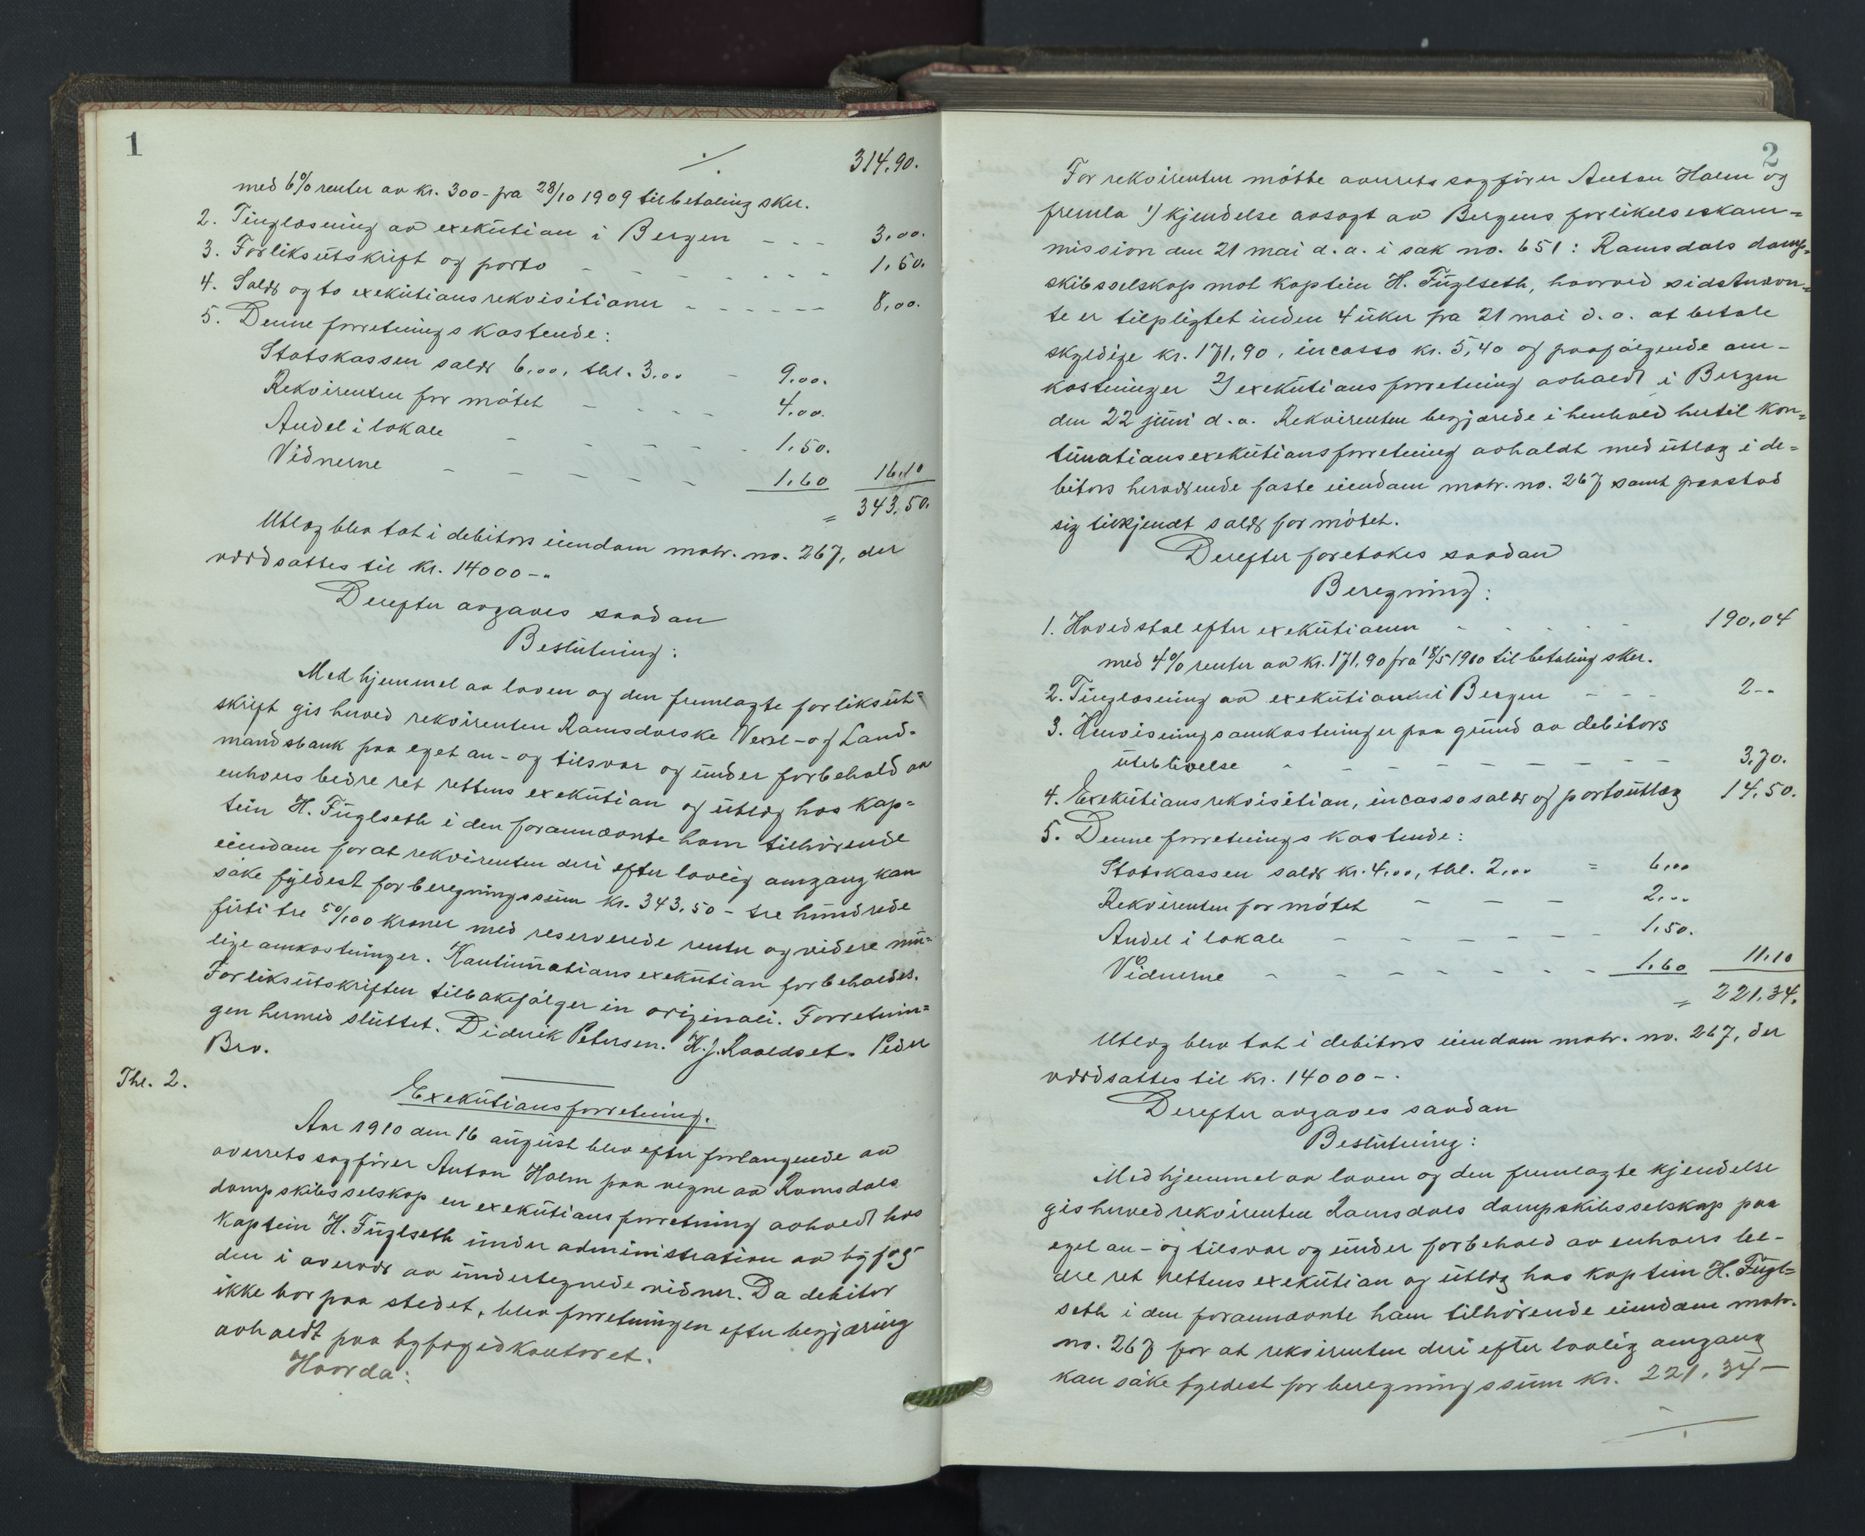 1
./.
314,90.
med 6% renter av kr. 300- fra 28/10 1909 til betaling sker.
2. Tinglæsning av exekütion i Bergen - - - 3,00.
3. Forliksütskrift og porto - - - - - - - 1,60.
4. Salær og to exekütionsrekvisitioner - - - - - - 8,00.
5. Denne forretnings kostende:
Statskassen salær 6,00, tbl. 3,00 - 9,00.
Rekvirenten for mötet - - - - 4,00.
Andel i lokale - - - - - 1,50.
Vidnerne - - - - - 1,60 16,10
= 343,50.
Utlæg blev tat i debitors eiendom matr. no. 267, der
værdsattes til kr. 14000-.
Derefter avgaves saadan
Beslütning:
Med hjemmel av loven og den fremlagte forliksüt=
skrift gis herved rekvirenten Romsdalske Vexel- og Land=
mandsbank paa eget an- og tilsvar og ünder forbehold av
enhvers bedre ret rettens exekütion og ütlæg hos kap=
tein H. Füglseth i den forannævnte ham tilhörende
eiendom for at rekvirenten deri efter lovlig omgang kan
söke fyldest for beregningssüm kr. 343,50 - tre hündrede
firti tre 50/100 kroner med reserverede renter og videre mü=
lige omkostninger. Kontinüationsexekütion forbeholdes.
Forliksütskriften tilbakefölger in originali. Forretnin=
gen hermed slüttet. Didrik Petersen. K. J. Roaldset. Peder
Bro.
Tbl. 2.
Exekütionsforretning.
Aar 1910 den 16 aügüst blev efter forlangende av
overretssagförer Anton Holm paa vegne av Romsdals
dampskibsselskap en exekütionsforretning avholdt hos
kaptein H. Füglseth ünder administration av byfog=
den i overvær av ündertegnede vidner. Da debitor
ikke bor paa stedet, blev forretningen efter begjæring
avholdt paa byfogedkontoret.
Hvorda:
2
For rekvirenten mötte overretssagförer Anton Holm og
fremla 1) kjendelse avsagt av Bergens forlikelseskom=
mission den 21 mai d.a. i sak no. 651: Romsdals damp=
skibsselskap mot kaptein H. Füglseth, hvorved sidstnævn=
te er tilpligtet inden 4 üker fra 21 mai d.a. at betale
skyldige kr. 171,90, incasso kr. 5,40 og paafölgende om-
kostninger 2) exekütionsforretning avholdt i Bergen
den 22 jüni d.a. Rekvirenten begjærede i henhold hertil kon=
tinüationsexekütionsforretning avholdt med ütlæg i de=
bitors herværende faste eiendom matr. no. 267 samt paastod
sig tilkjendt salær for mötet.
Derefter foretokes saadan
Beregning:
1. Hovedstol efter exekütionen - - - - - 190,04
med 4% renter av kr. 171,90 fra 18/5 1910 til betaling sker.
2. Tinglæsning av exekütionen i Bergen - - - 2--
3. Henvisningsomkostninger paa gründ av debitors
üteblivelse - - - - - - - - - 3,70.
4. Exekütionsrekvisition, incassosalær og portoütlæg 14,50.
5. Denne forretnings kostende:
Statskassen salær kr. 4,00, tbl. 2,00 = 6,00
Rekvirenten for mötet - - - 2,--
Andel i lokale - - - - - - 1,50.
Vidnerne - - - - - - - 1,60 11,10
= 221,34.
Utlæg blev tat i debitors eiendom matr. no. 267, der
værdsattes til kr. 14000-.
Derefter avgaves saadan
Beslütning:
Med hjemmel av loven og den fremlagte kjendelse
gis herved rekvirenten Romsdals dampskibsselskap paa
eget an- og tilsvar og ünder forbehold av enhvers be-
dre ret rettens exekütion og ütlæg hos kaptein H. Fügl=
seth i den forannævnte ham tilhörende eiendom matr.
no. 267 for at rekvirenten deri efter lovlig omgang
kan söke fyldest for beregningssüm kr. 221,34-
./.